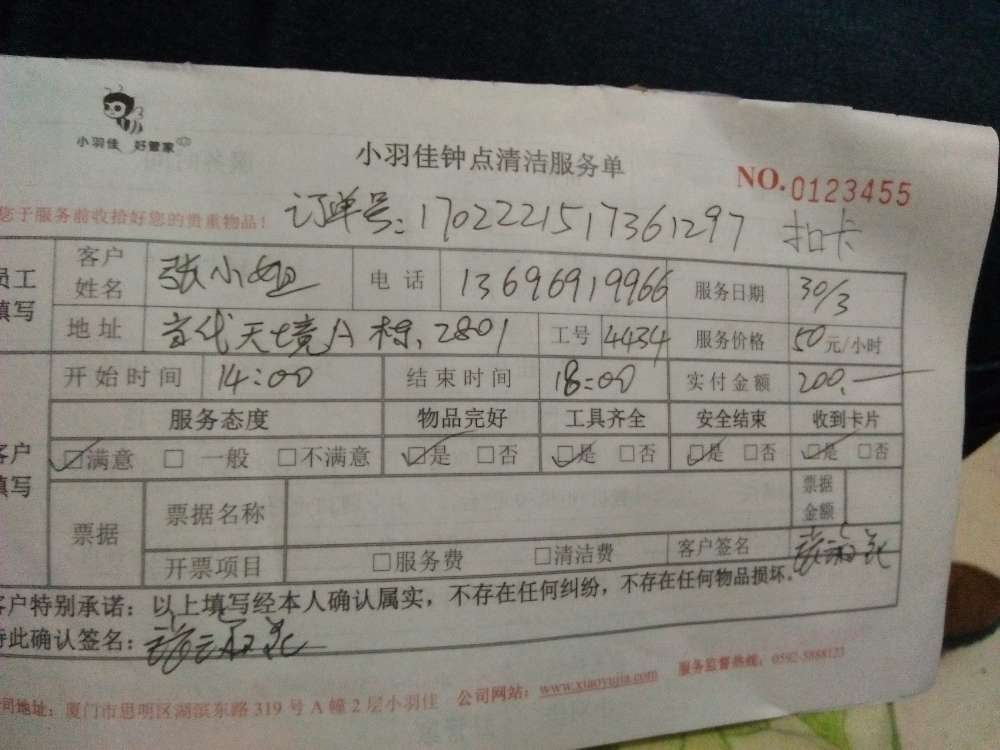 小羽佳 好管家
小羽佳钟点清洁服务单
NO.0123455
您于服务前收拾好您的贵重物品！
订单号：1702221517361297 扣卡
员工填写
客户姓名 张小姐 电话 13696919966 服务日期 30/3
地址 古代天境A栋，2801 工号 4434 服务价格 50元/小时
开始时间 14:00 结束时间 18:00 实付金额 200.一
客户填写
服务态度 物品完好 工具齐全 安全结束 收到卡片
☑满意 □一般 □不满意 ☑是 □否 ☑是 □否 ☑是 □否 ☑是 □否
票据 票据名称 票据金额
开票项目 □服务费 □清洁费 客户签名
客户特别承诺：以上填写经本人确认属实，不存在任何纠纷，不存在任何物品损坏。
特此确认签名：
公司地址：厦门市思明区湖滨东路319号A幢2层小羽佳 公司网站：www.xiaoyujia.com 服务监督热线：0592-5888123